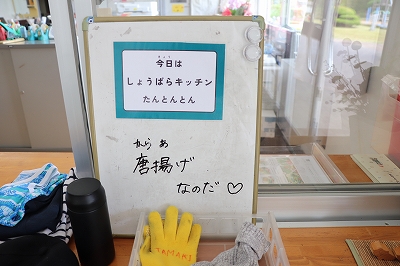 きょう
今日は
しょうばらキッチン
たんとんとん
から あ
唐揚げ
なのだ♡
TAMAKI